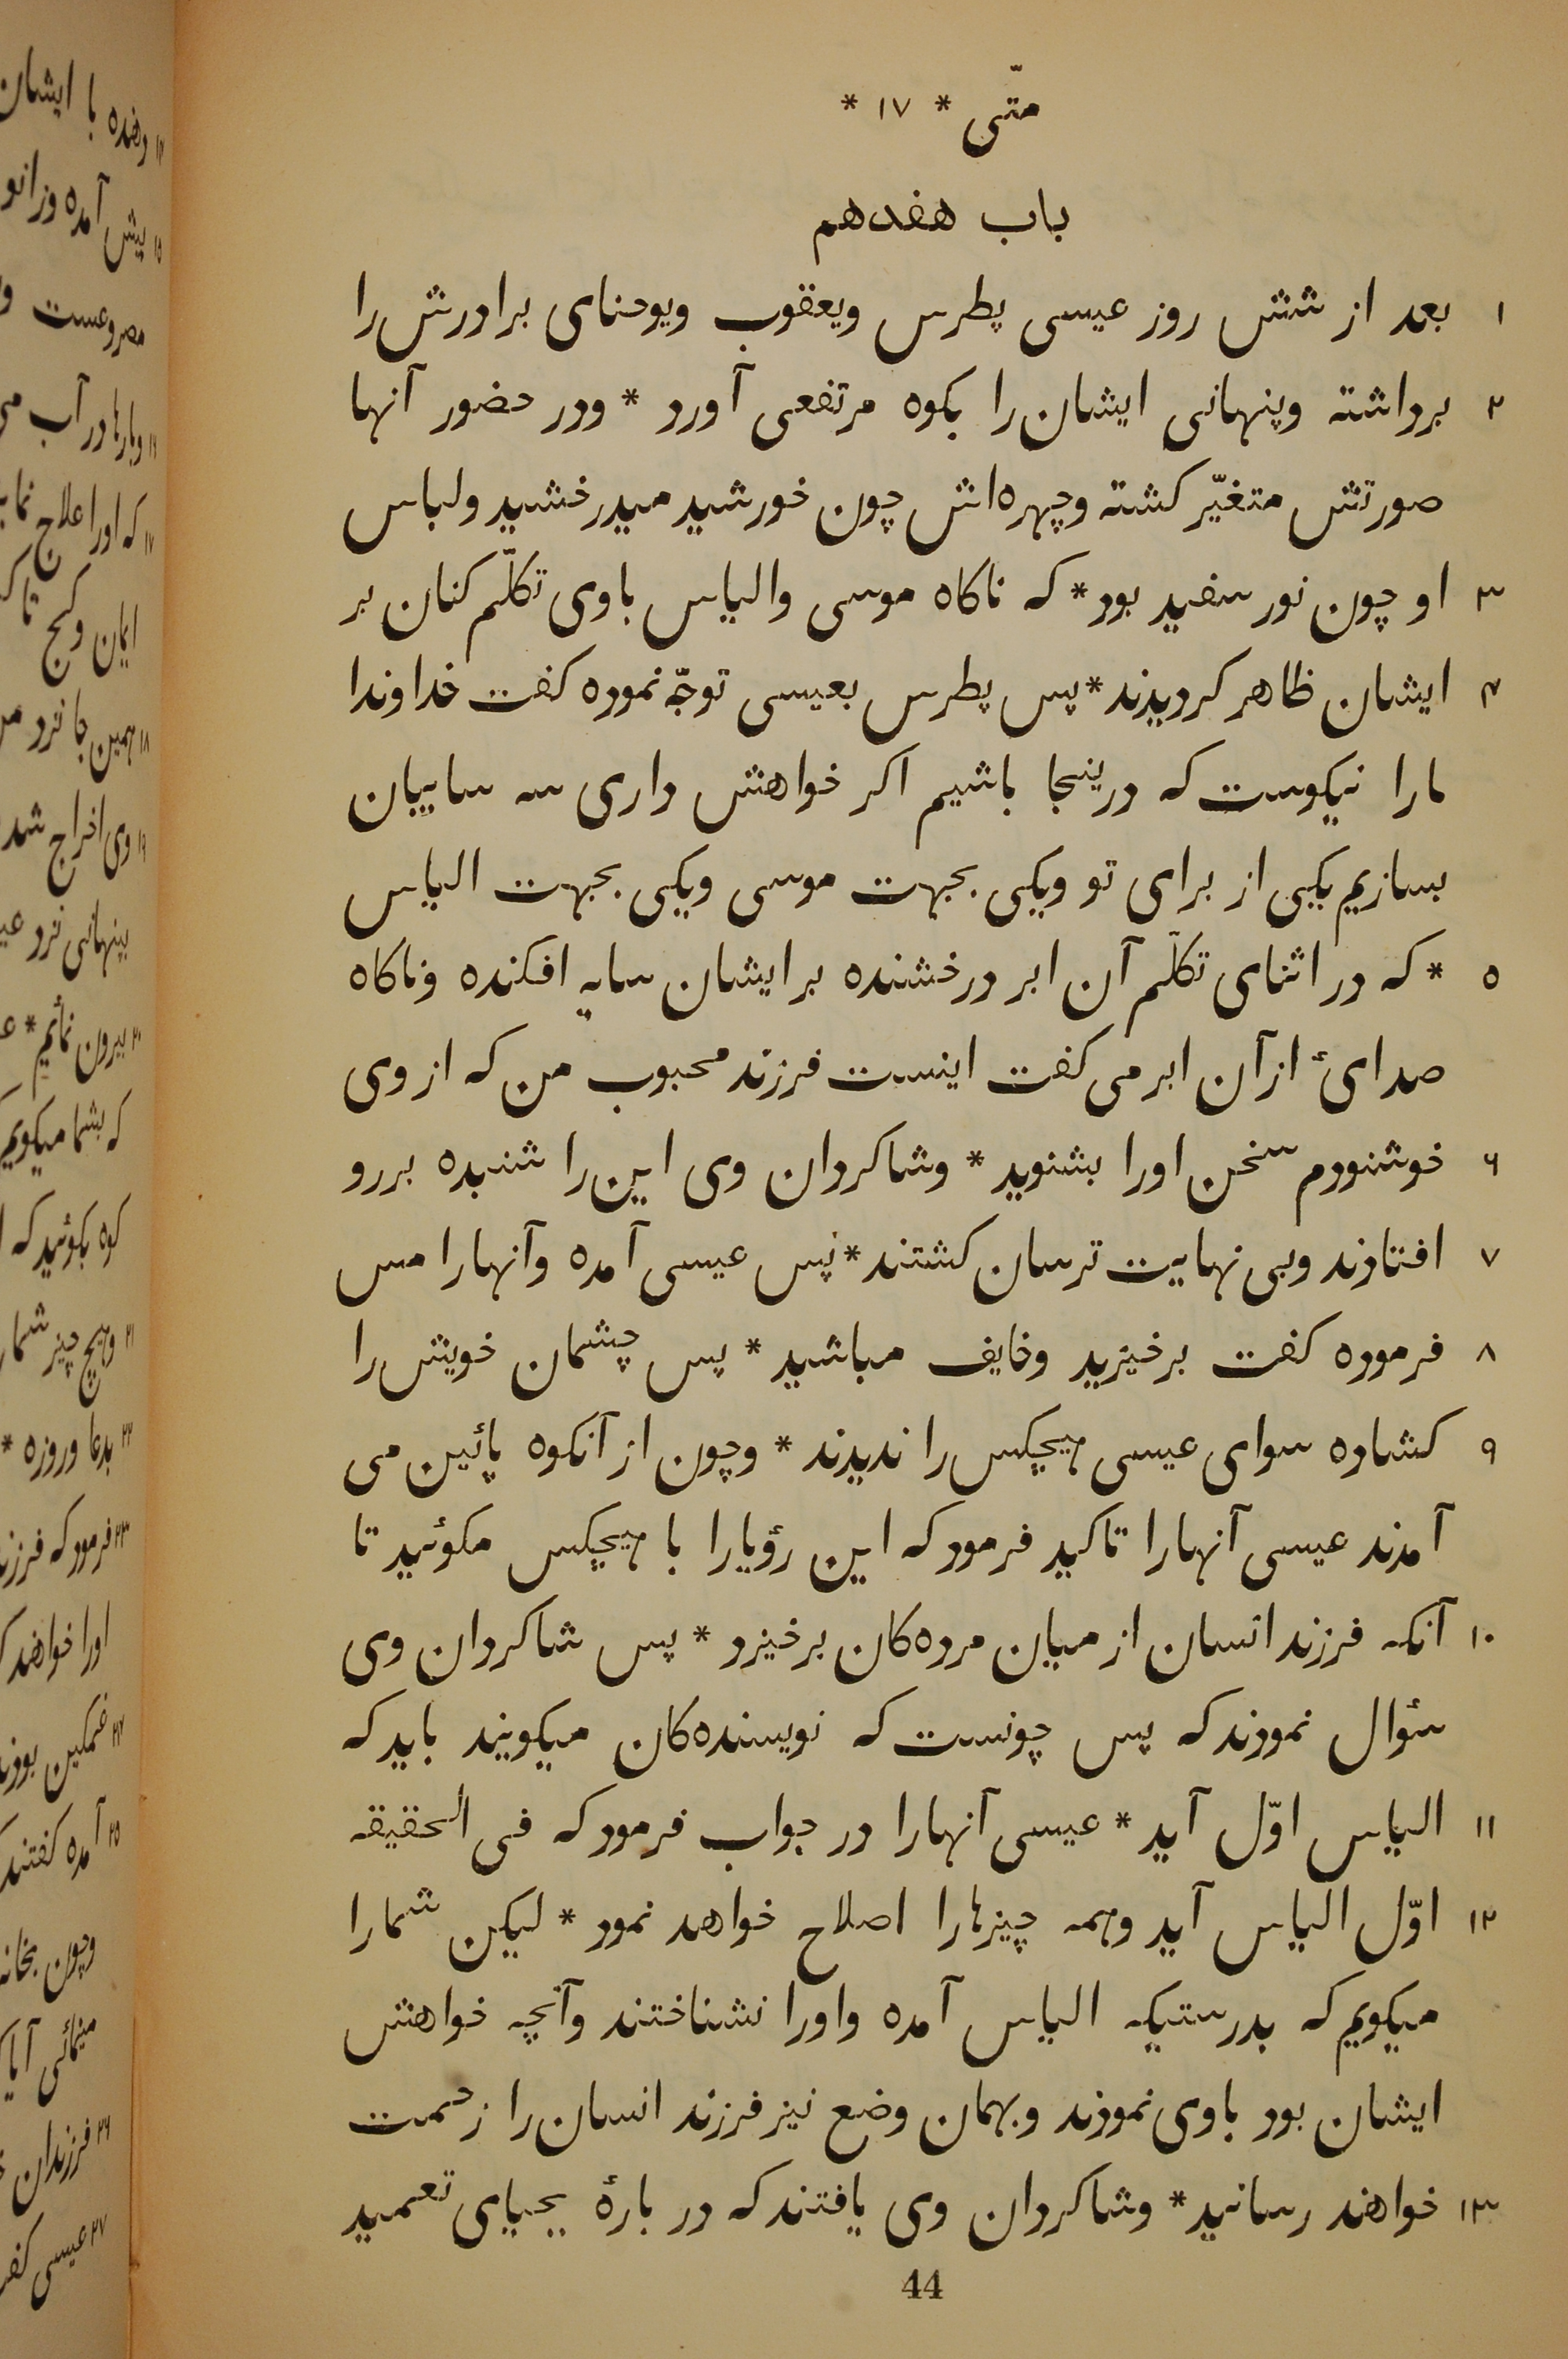 متّی * ١٧ *
باب هفدهم
١ بعد از شش روز عیسی پطرس ویعقوب ویوحنای برادرش را
٢ برداشته وپنهانی ایشان را بکوه مرتفعی آورد * ودر حضور آنها
صورتش متغیّر کشته وچهره‌اش چون خورشید میدرخشید ولباس
٣ او چون نور سفید بود * که ناکاه موسی والیاس باوی تکلّم کنان بر
۴ ایشان ظاهر کردیدند * پس پطرس بعیسی توجّه نموده کفت خداوندا
مارا نیکوست که درینجا باشیم اکر خواهش داری سه سایبان
بسازیم یکی از برای تو ویکی بجهت موسی ویکی بجهت الیاس
۵ * که در اثنای تکلّم آن ابر درخشنده بر ایشان سایه افکنده وناکاه
صدایٔ از آن ابر می کفت اینست فرزند محبوب من که از وی
۶ خوشنودم سخن اورا بشنوید * وشاکردان وی این را شنیده بررو
٧ افتادند وبی نهایت ترسان کشتند * پس عیسی آمده وآنهارا مس
٨ فرموده کفت برخیزید وخایف مباشید * پس چشمان خویش را
٩ کشاده سوای عیسی هیچکس را ندیدند * وچون از آنکوه پائین می
آمدند عیسی آنهارا تاکید فرمود که این رؤیارا با هیچکس مکوئید تا
١٠ آنکه فرزند انسان از میان مرده‌کان برخیزد * پس شاکردان وی
سئوال نمودند که پس چونست که نویسنده‌کان میکویند باید که
١١ الیاس اوّل آید * عیسی آنهارا در جواب فرمود که فی الحقیقه
١٢ اوّل الیاس آید وهمه چیزهارا اصلاح خواهد نمود * لیکن شمارا
میکویم که بدرستیکه الیاس آمده واورا نشناختند وآنچه خواهش
ایشان بود باوی نمودند وبهمان وضع نیز فرزند انسان را زحمت
١٣ خواهند رسانید * وشاکردان وی یافتند که در بارهٔ یحیای تعمید
44